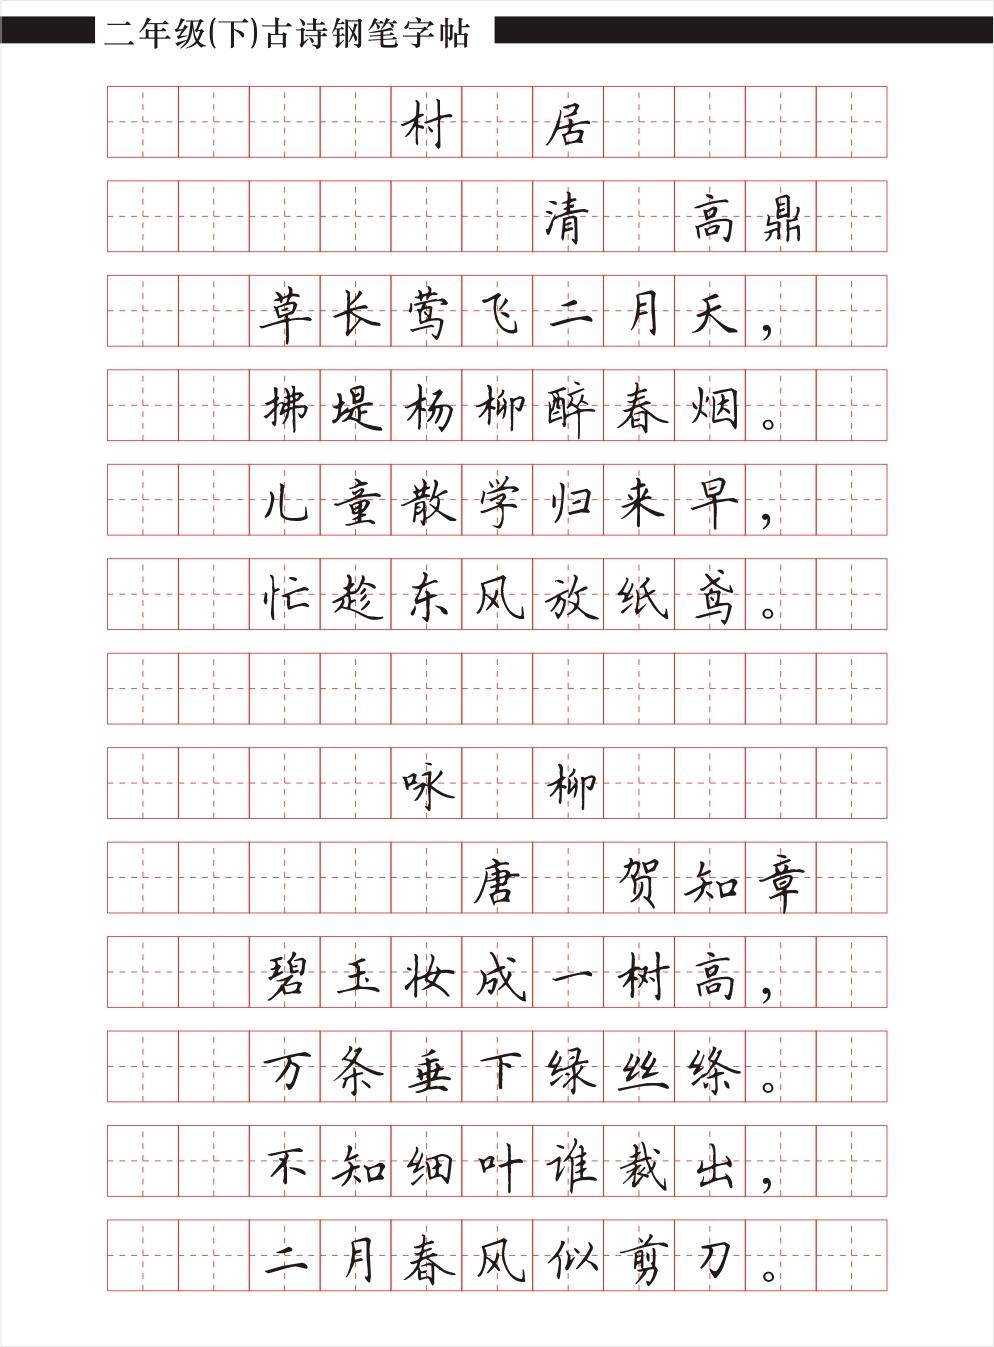 二年级(下)古诗钢笔字帖
村 居
清 高鼎
草长莺飞二月天，
拂堤杨柳醉春烟。
儿童散学归来早，
忙趁东风放纸鸢。
咏 柳
唐 贺知章
碧玉妆成一树高，
万条垂下绿丝绦。
不知细叶谁裁出，
二月春风似剪刀。